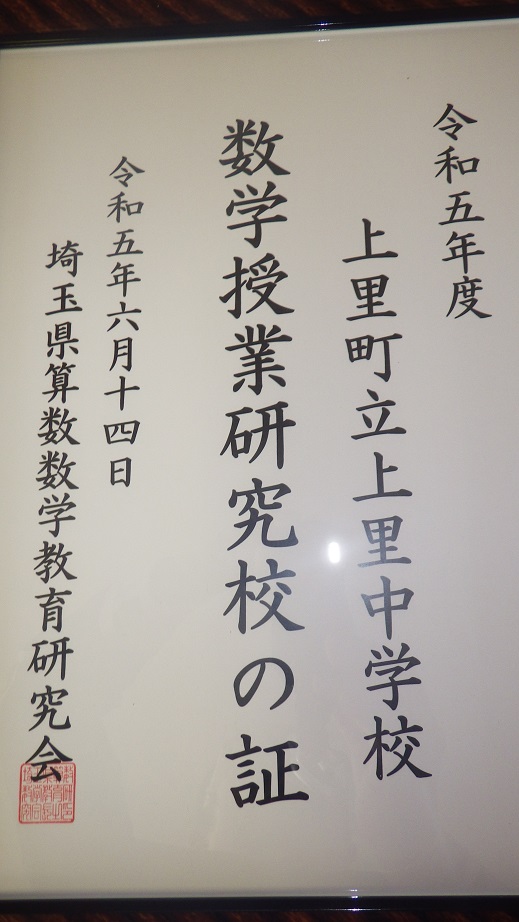 令和五年度
上里町立上里中学校
数学授業研究校の証
令和五年六月十四日
埼玉県算数数学教育研究会